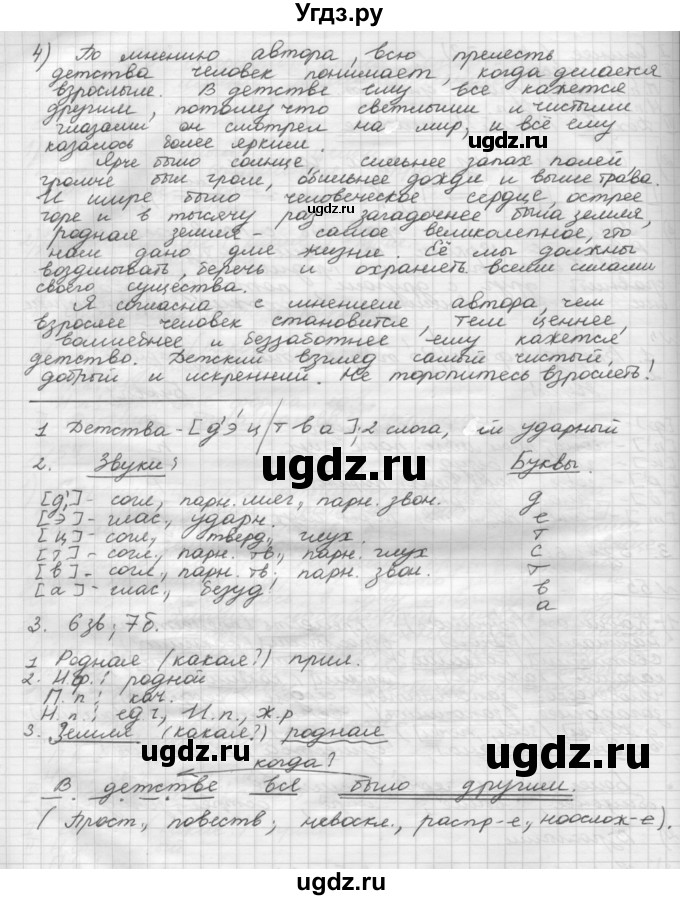 Угдз.ру
4) По мнению автора, всю прелесть
детства человек понимает, когда делается
взрослым. В детстве ему всё кажется
другим, потому что светлыми и чистыми
глазами он смотрел на мир, и всё ему
казалось более ярким.
Ярче было солнце, сильнее запах полей,
громче был гром, обильнее дожди и выше трава.
И шире было человеческое сердце, острее
горе и в тысячу раз загадочнее была земля,
родная земля - самое великолепное, что
нам дано для жизни. Её мы должны
возделывать, беречь и охранять всеми силами
своего существа.
Я согласна с мнением автора, чем
взрослее человек становится, тем ценнее,
волшебнее и беззаботнее ему кажется
детство. Детский взгляд самый чистый,
добрый и искренний. Не торопитесь взрослеть!
1 Детства - [д'э́ц/тва], 2 слога, 1й ударный
2. Звуки: Буквы.
[д'] - согл., парн. мяг., парн. звон. д
[э] - глас., ударн. е
[ц] - согл., тверд., глух. т
[т] - согл., парн. тв., парн. глух с
[в] - согл., парн. тв., парн. звон. т
[а] - глас., безуд. в
а
3. 6 зв; 7 б.
1 Родная (какая?) прил.
2. Н.ф.: родной
П.п.: кач.
Н.п.: ед.ч, И.п., ж.р
3. Земля (какая?) родная
когда?
В детстве всё было другим.
(Прост., повеств., невоскл., распр-е, неослож-е).
uдgz.ru